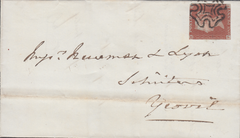 Mess.rs Newman & Lyon
Solicitors
Yeovil